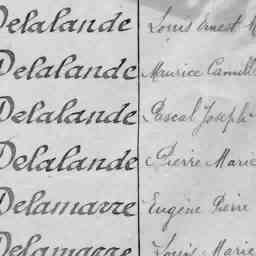 Delalande Louis Ernest
Delalande Maurice Camille
Delalande Pascal Joseph
Delalande Pierre Marie
Delamarre Eugène Pierre
Delamarre Louis Marie